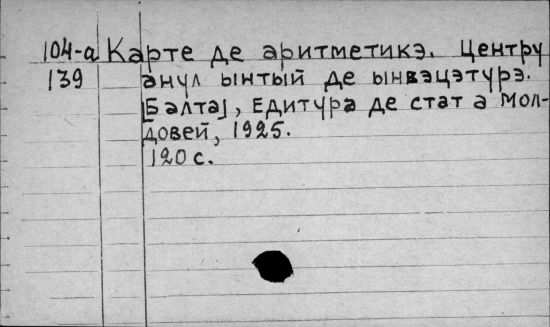 104-а Карте де аритметикэ. Центру
139 анул ынтый де ынвэцэтурэ.
[Балта], Едитура де стат а Мол-
довей, 1925.
120 с.